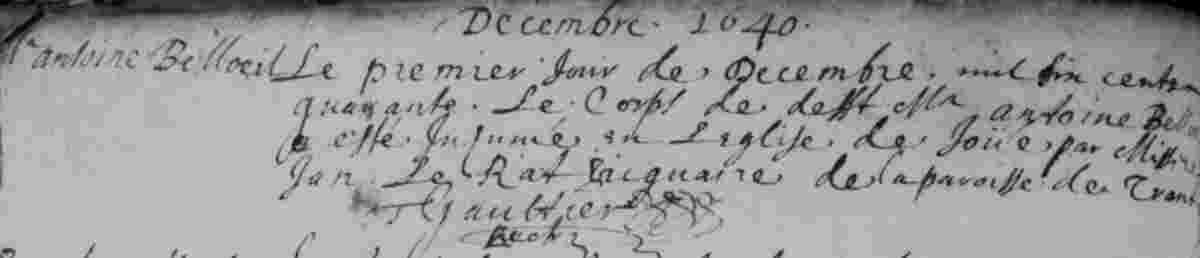 Decembre. 1640.
Mr antoine Belloeil Le premier Jour de Decembre. mil six cents
quarante. Le Corps de defft Mr antoine Bell
a esté Inhumé en L'eglise de Joüe, par Missire
Jan Le Rat viquaire de la paroisse de Trans
Gauttier
Rectr